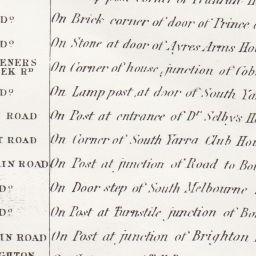 Dº On Brick corner of door of Prince o
Dº On Stone at door of Ayres Arms Ho
ENERS
EK Rᴰ On Corner of house, junction of Cob
Dº On Lamp post, at door of South Ya
ROAD On Post at entrance of Dʳ Selbys H
T ROAD On Corner of South Yarra Club Hou
IN ROAD On Post at junction of Road to Bo
Dº On Door step of South Melbourne
Dº On Post at Turnstile junction of Bo
IN ROAD On Post at junction of Brighton
GHTON